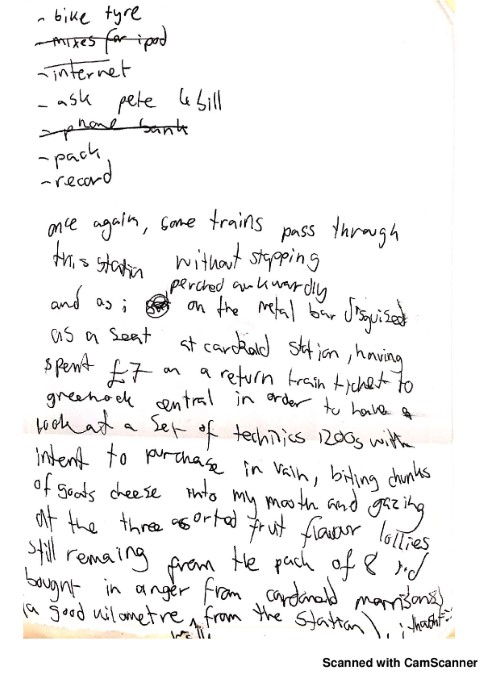 - bike tyre
- mixes for ipod
- internet
- ask pete & bill
- phone bank
- pack
- record
once again, some trains pass through
this station without stopping
perched awkwardly
and as i on the metal bar disguised
as a seat at cardonald station, having
spent £7 on a return train ticket to
greenock central in order to have a
look at a set of technics 1200s with
intent to purchase in vain, biting chunks
of goats cheese into my mouth and gazing
at the three assorted fruit flavour lollies
still remaing from the pack of 8 i'd
bought in anger from cardonald morrisons
(a good kilometre from the station), i thought:
well
Scanned with CamScanner